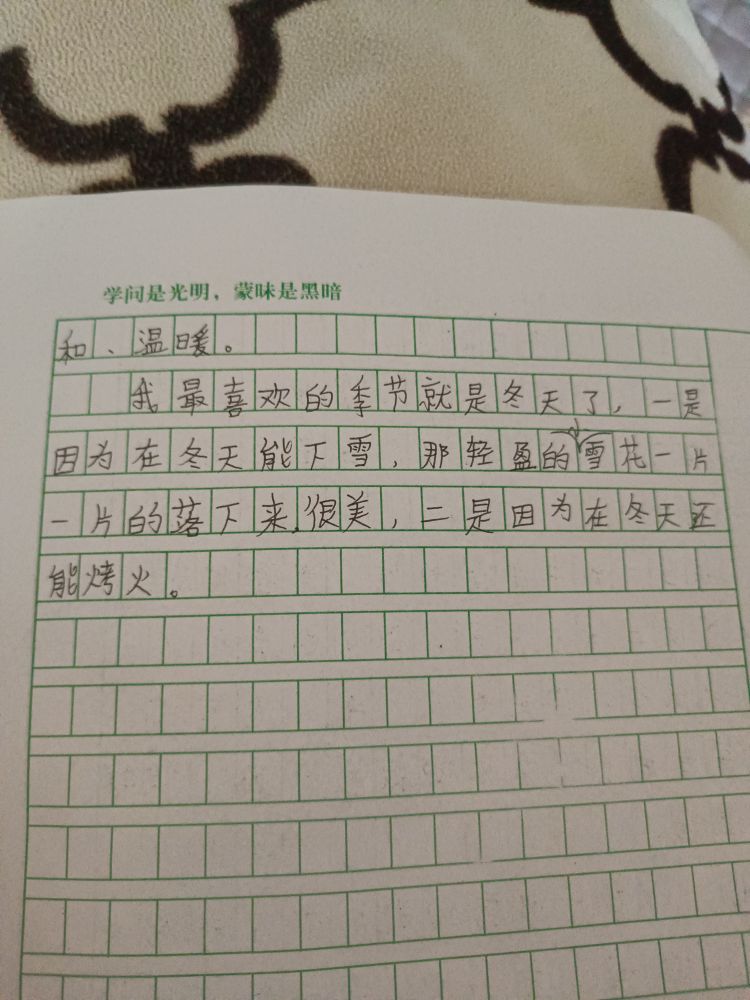 学问是光明，蒙昧是黑暗
和、温暖。
我最喜欢的季节就是冬天了，一是
因为在冬天能下雪，那轻盈的雪花一片
一片的落下来.很美，二是因为在冬天还
能烤火。